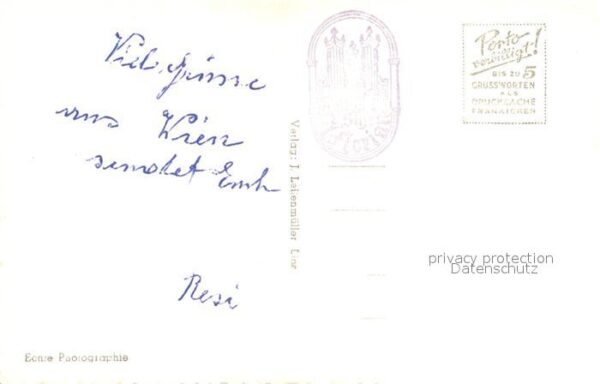 Viel Grüsse
aus Wien
sendet Euch
Resi
Echte Photographie
Verlag: J. Ledenmüller Linz
St. Florian
Porto
verbilligt!
BIS ZU 5
GRUSSWORTEN
ALS
DRUCKSACHE
FRANKIEREN
privacy protection
Datenschutz